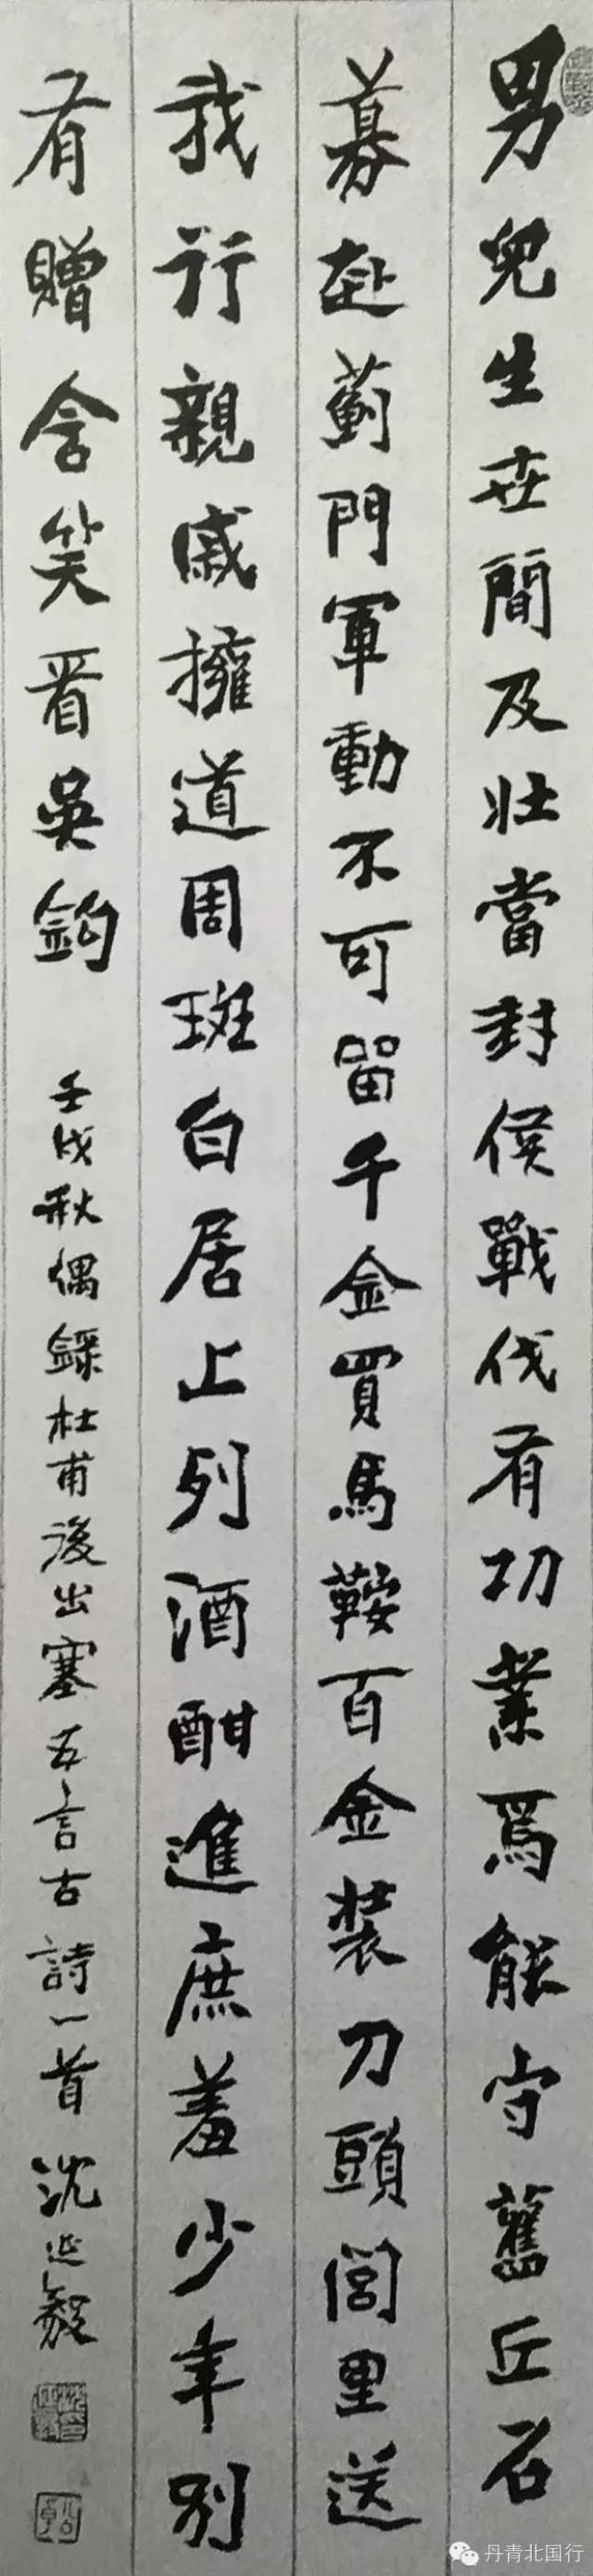 男兒生世間及壯當封侯戰伐有功業焉能守舊丘石
募赴薊門軍動不可留千金買馬鞍百金裝刀頭閭里送
我行親戚擁道周斑白居上列酒酣進庶羞少年別
有贈含笑看吳鉤
壬戌秋偶錄杜甫後出塞五言古詩一首 沈延毅
丹青北国行